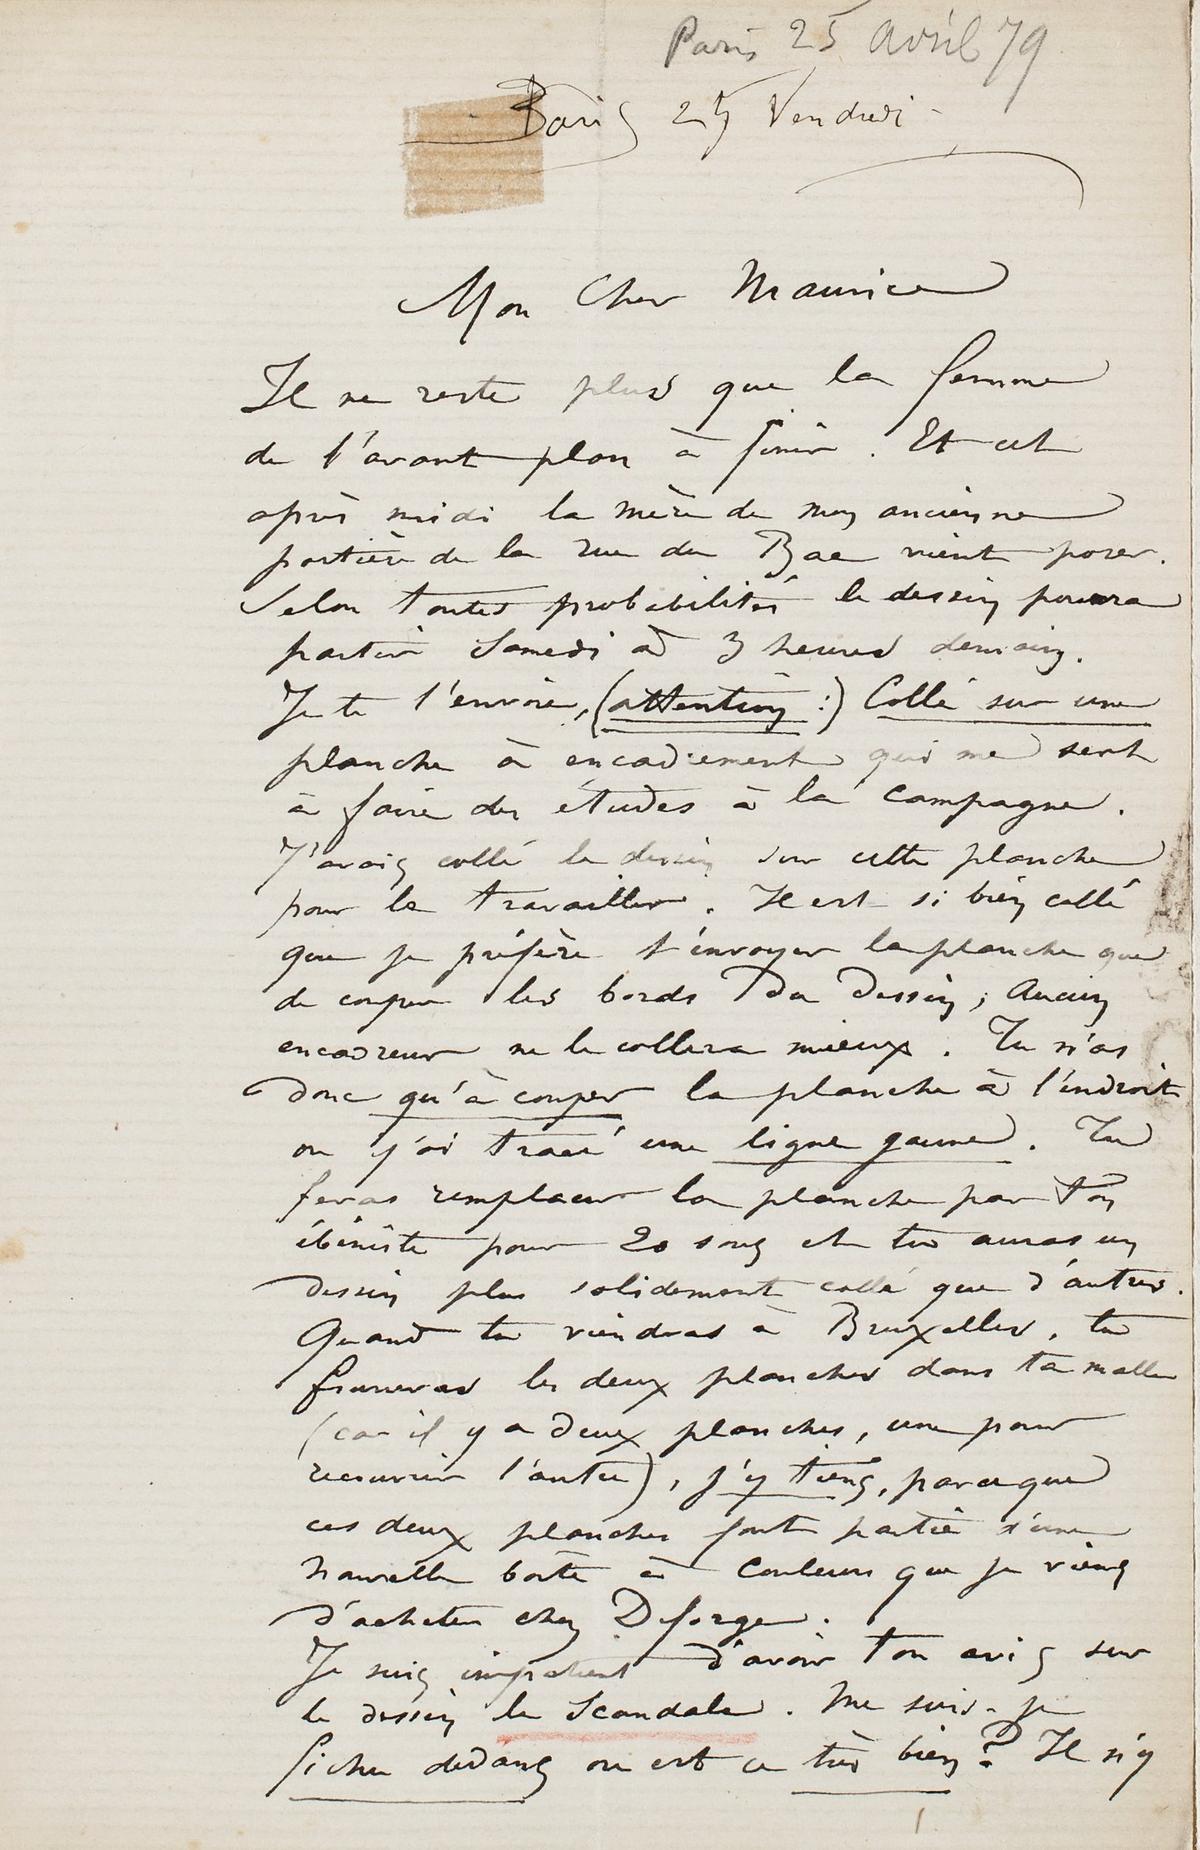 Paris 25 avril 79
Paris 25 Vendredi -
Mon Cher Maurice
Il ne reste plus que la femme
de l'avant plan à finir. Et cet
après midi la mère de mon ancienne
portière de la rue du Bac vient poser.
Selon toutes probabilités le dessin pourra
partir Samedi à 3 heures demain.
Je te l'envoie, (attention :) Collé sur une
planche à encadrement qui me sert
à faire des études à la campagne.
J'avais collé le dessin sur cette planche
pour le travailler. Il est si bien collé
que je préfère t'envoyer la planche que
de couper les bords du dessin ; Aucun
encadreur ne le collera mieux. Tu n'as
donc qu'à couper la planche à l'endroit
ou j'ai tracé une ligne jaune. Tu
feras remplacer la planche par ton
ébéniste pour 20 sous et tu auras un
dessin plus solidement collé que d'autres.
Quand tu viendras à Bruxelles, tu
fourreras les deux planches dans ta malle
(car il y a deux planches, une pour
recouvrir l'autre), j'y tiens, parceque
ces deux planches font partie d'une
nouvelle boîte à couleurs que je viens
d'acheter chez Deforge.
Je suis impatient d'avoir ton avis sur
le dessin le Scandale. Me suis-je
fichu dedans ou est ce très bien ? Il n'y